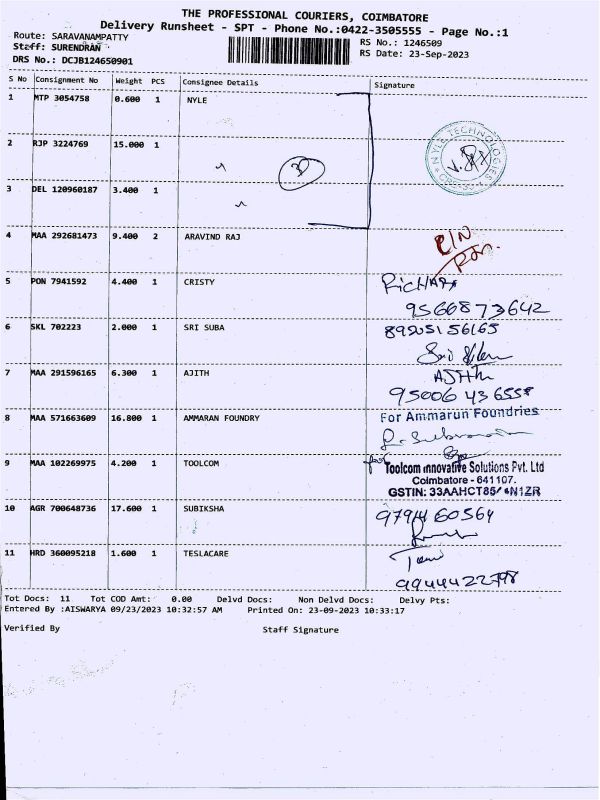 THE PROFESSIONAL COURIERS, COIMBATORE
Delivery Runsheet - SPT - Phone No.:0422-3505555 - Page No.:1
Route: SARAVANAMPATTY
RS No.: 1246509
Staff: SURENDRAN
RS Date: 23-Sep-2023
DRS No.: DCJB124650901
S No Consignment No Weight PCS Consignee Details Signature
1 MTP 3054758 0.600 1 NYLE
NYLE TECHNOLOGIES
2 RJP 3224769 15.000 1
3 DEL 120960187 3.400 1
4 MAA 292681473 9.400 2 ARAVIND RAJ
5 PON 7941592 4.400 1 CRISTY
9566873642
6 SKL 702223 2.000 1 SRI SUBA
7 MAA 291596165 6.300 1 AJITH AJith
95006 436558
8 MAA 571663609 16.800 1 AMMARAN FOUNDRY For Ammarun Foundries
9 MAA 102269975 4.200 1 TOOLCOM for Toolcom innovative Solutions Pvt. Ltd
Coimbatore - 641107.
GSTIN: 33AAHCT85
10 AGR 700648736 17.600 1 SUBIKSHA
11 HRD 360095218 1.600 1 TESLACARE
Tot Docs: 11 Tot COD Amt: 0.00 Delvd Docs: Non Delvd Docs: Delvy Pts:
Entered By :AISWARYA 09/23/2023 10:32:57 AM Printed On: 23-09-2023 10:33:17
Verified By Staff Signature